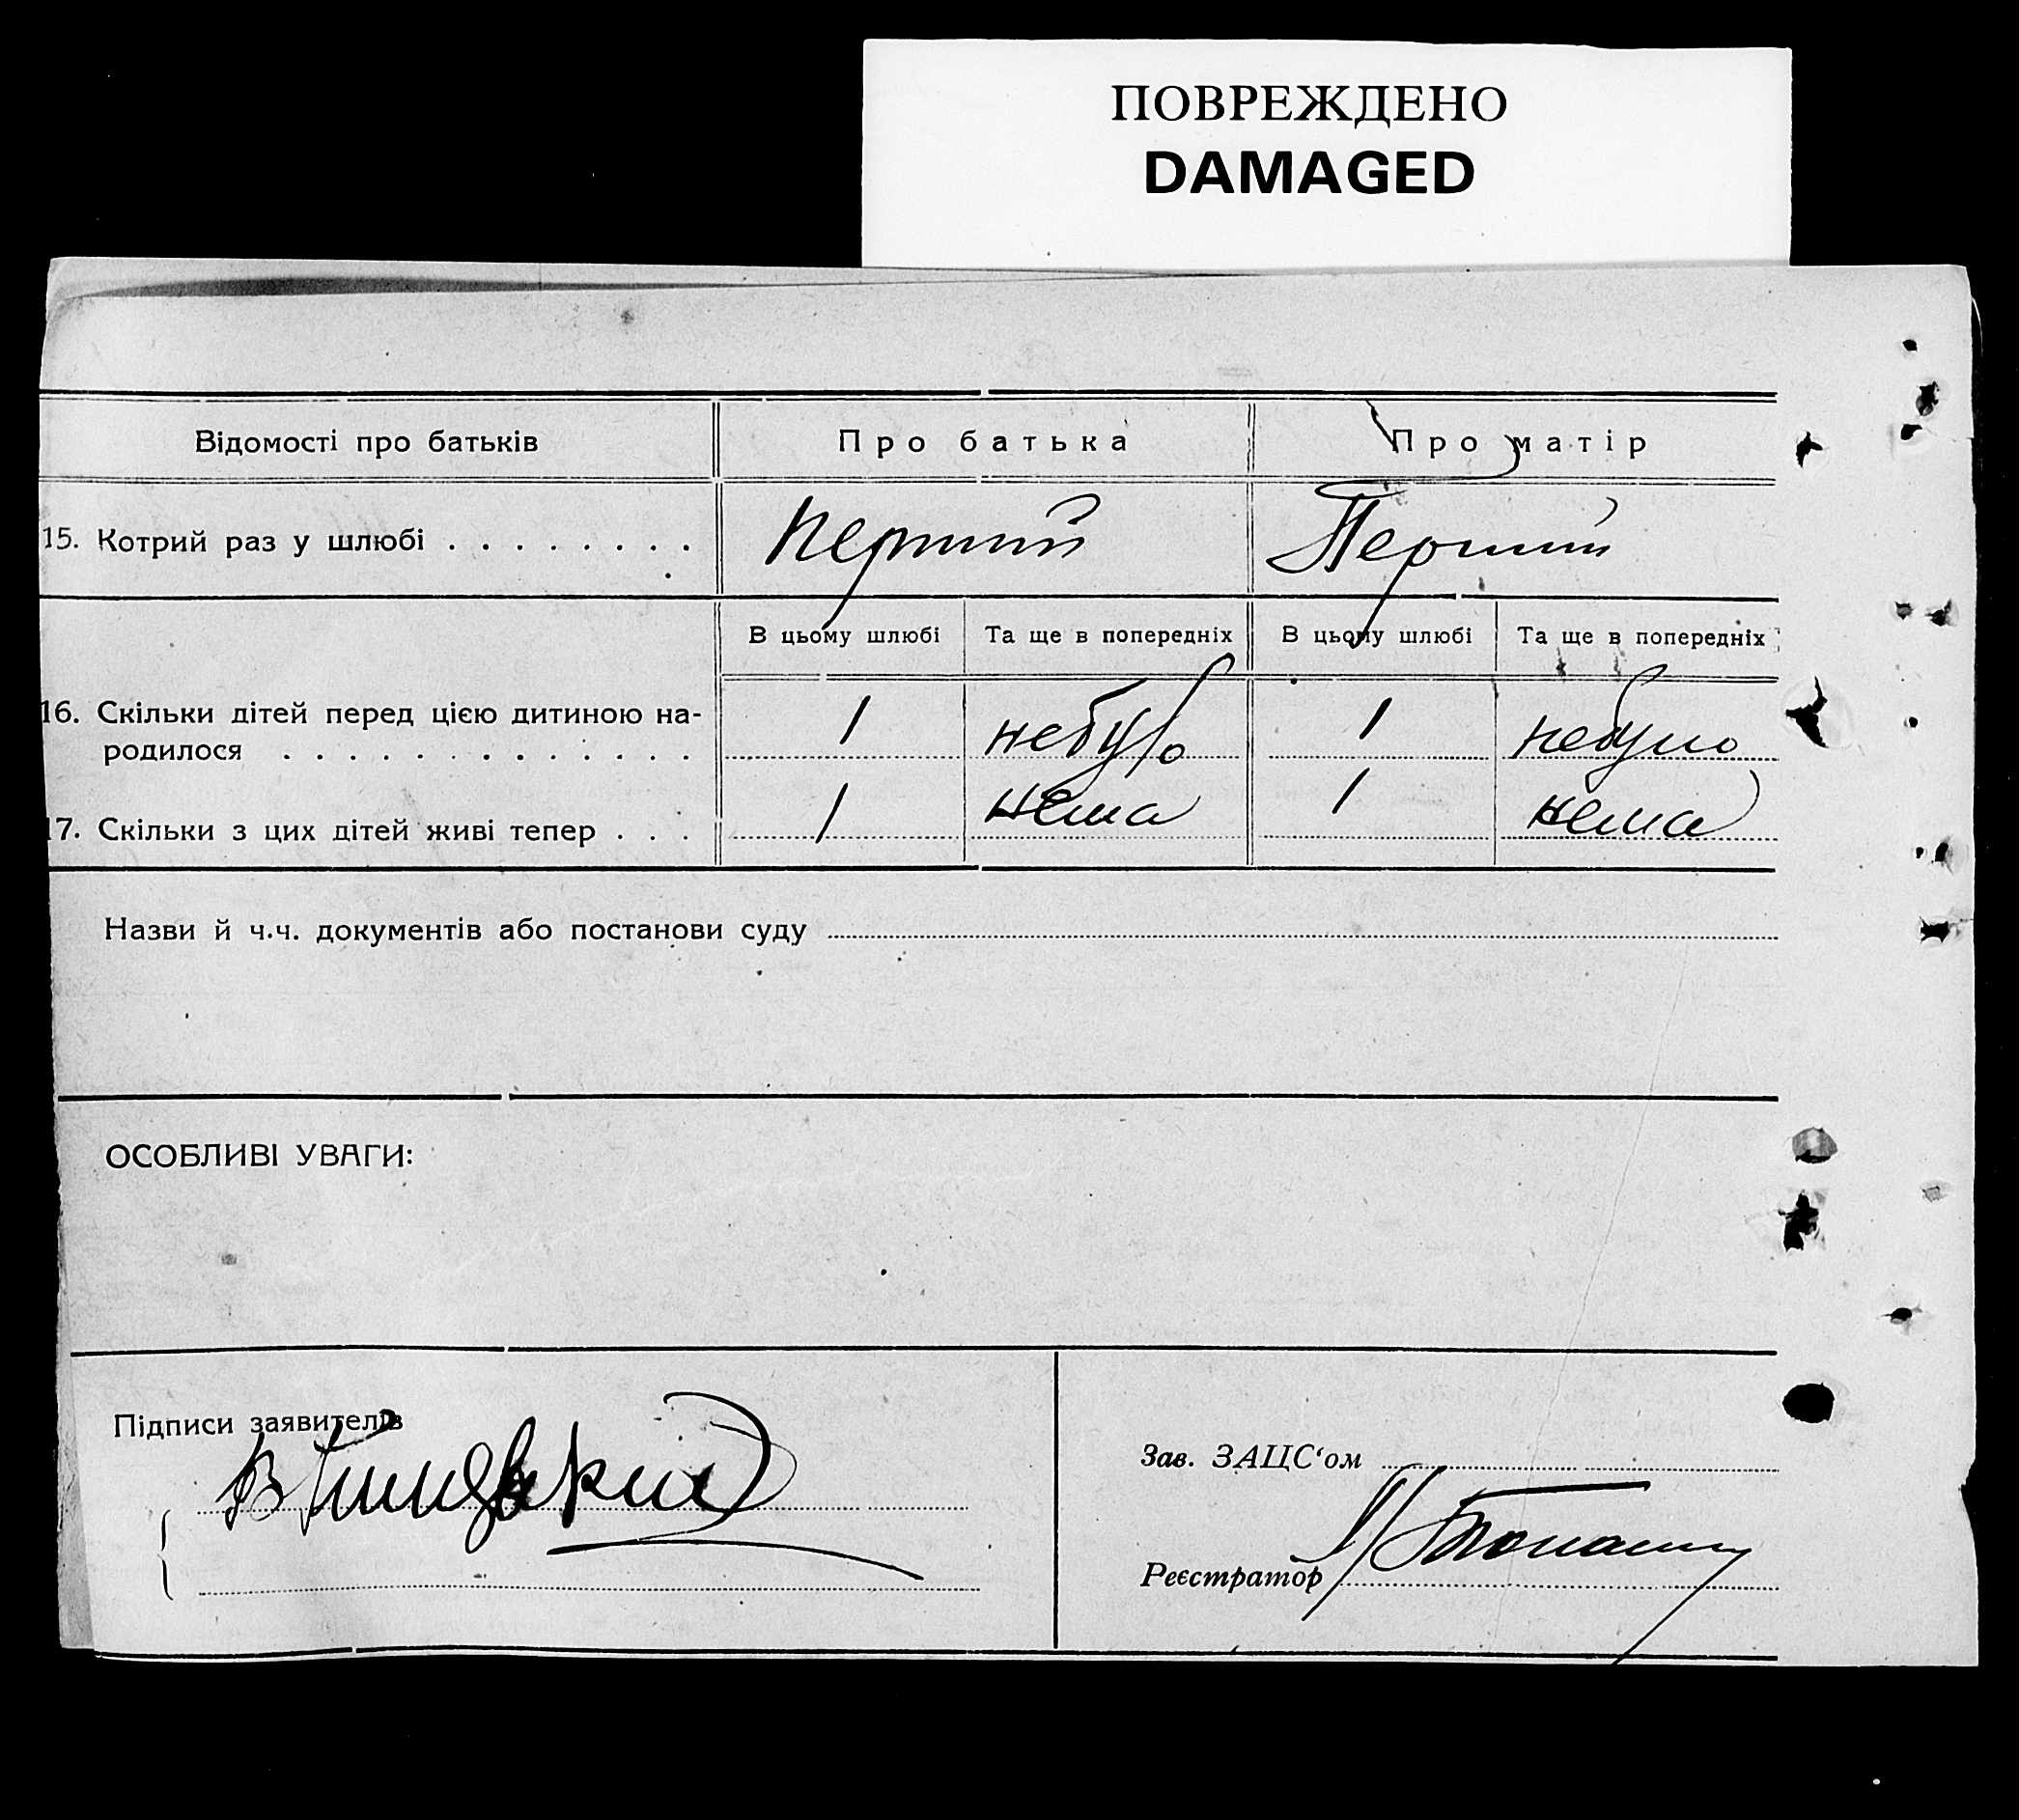 ПОВРЕЖДЕНО
DAMAGED
Відомості про батьків Про батька Про матір
15. Котрий раз у шлюбі . . . . . . . . Перший Перший
В цьому шлюбі Та ще в попередніх В цьому шлюбі Та ще в попередніх
16. Скільки дітей перед цією дитиною на-
родилося . . . . . . . . . . . . . 1 небуло 1 небуло
17. Скільки з цих дітей живі тепер . . . 1 нема 1 нема
Назви й ч.ч. документів або постанови суду
ОСОБЛИВІ УВАГИ:
Підписи заявителів
Зав. ЗАЦС‘ом
Реєстратор